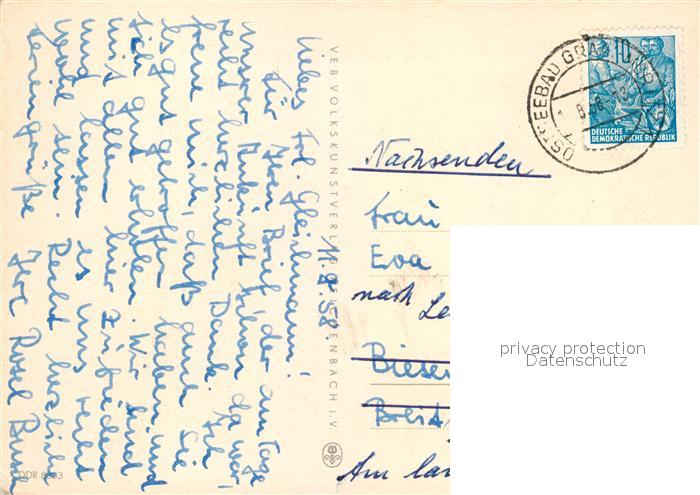 11.8.58
Liebes Frl. Gleichmann!
Für Ihren Brief, der am Tage
unserer Ankunft schon da war
recht herzlichen Dank. Ich
freue mich, daß auch Sie
es gut getroffen haben und
sich gut erholen. Wir sind
mit allem hier zufrieden
und lassen es uns recht
wohl sein. Recht herzliche
Feriengrüße Ihre Rosel
VEB VOLKSKUNSTVERLAG REICHENBACH I. V.
DDR
OSTSEEBAD GRAAL
10
DEUTSCHE
DEMOKRATISCHE REPUBLIK
Nachsenden
Frau
Eva
nach Le
Biesen
Breit
Am lan
privacy protection
Datenschutz